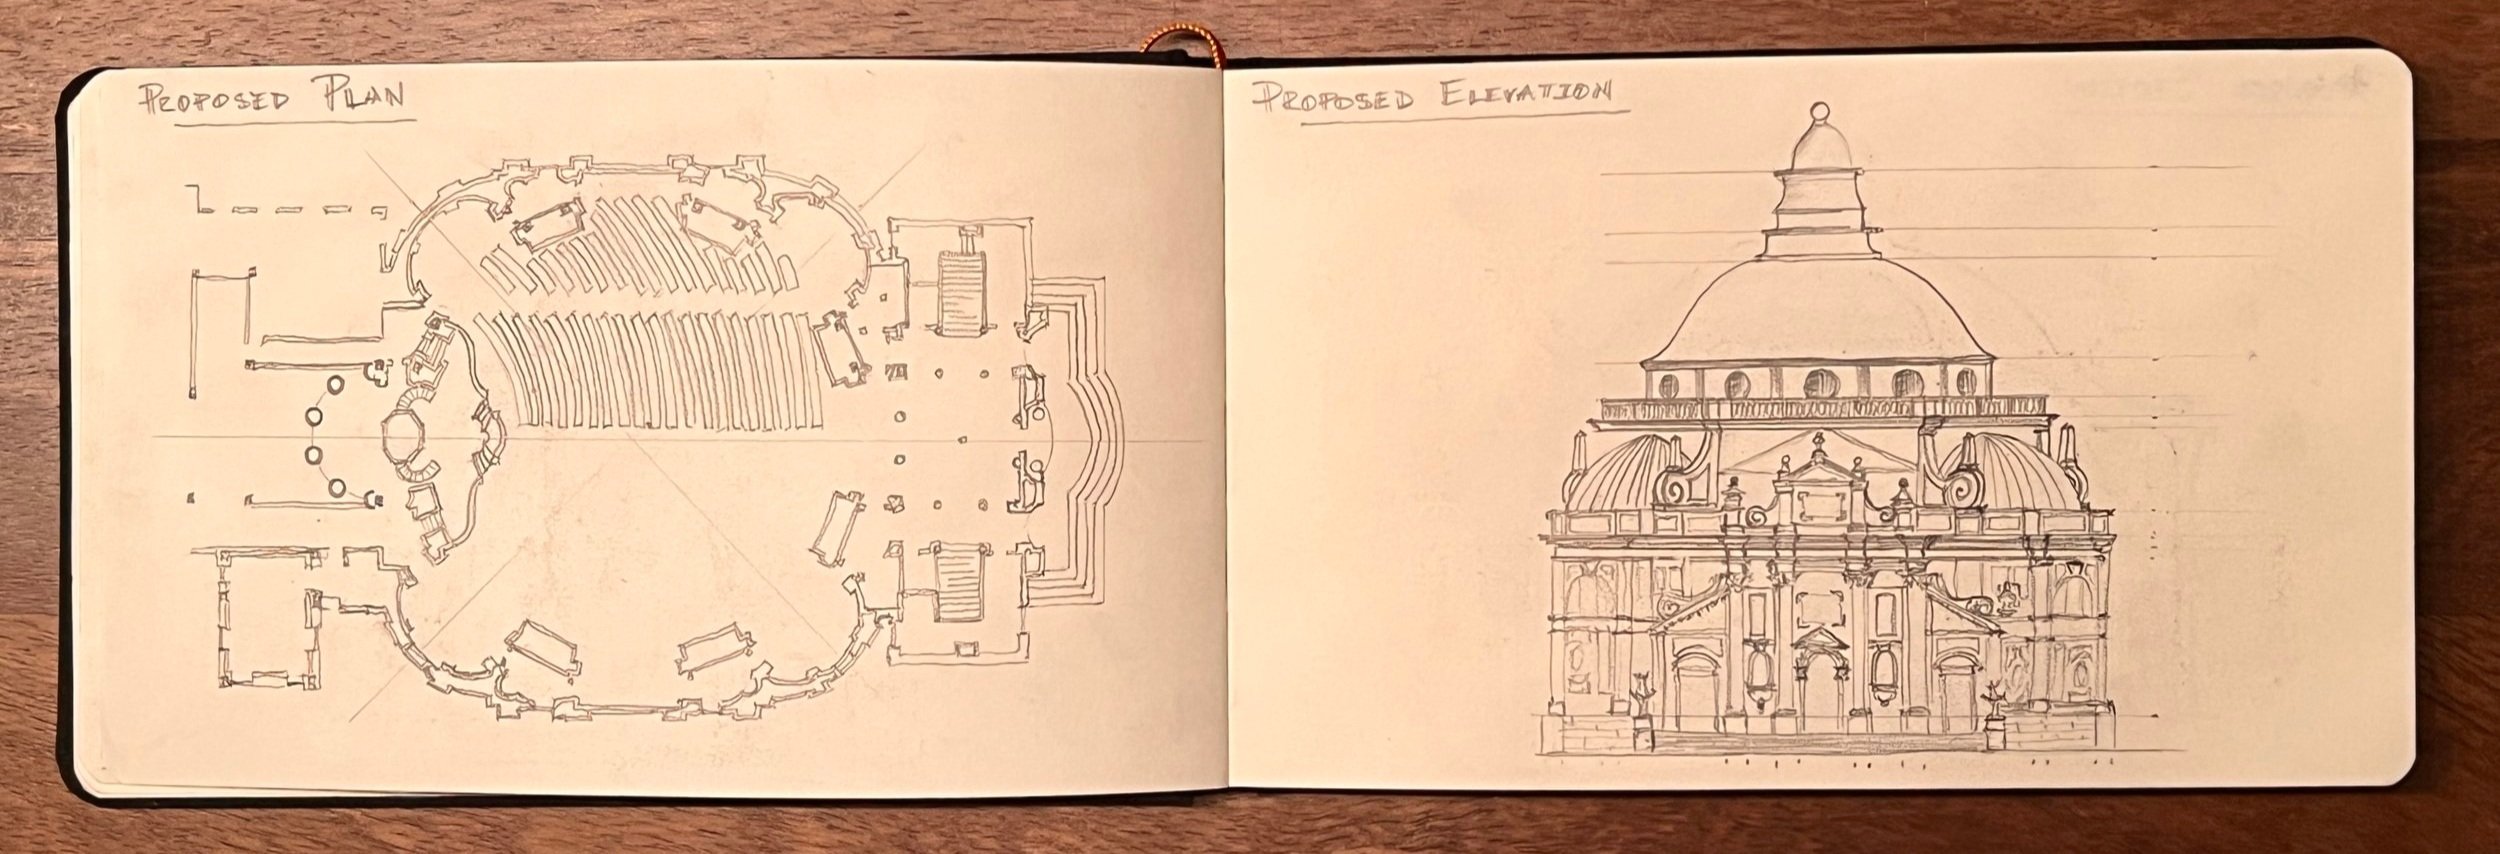 PROPOSED PLAN
PROPOSED ELEVATION